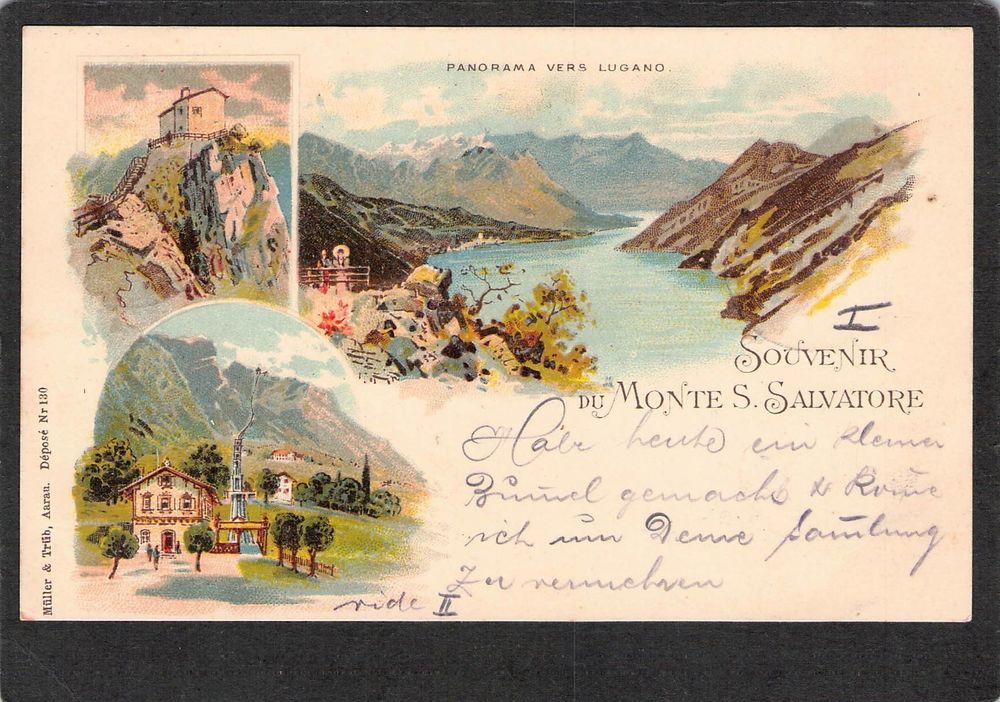 PANORAMA VERS LUGANO.
I
SOUVENIR
DU MONTE S. SALVATORE
Habe heute ein kleiner
Bumel gemacht &
ich um Deine Samlung
Zu vermehren
vide II
Müller & Trüb, Aarau. Déposé Nr 130